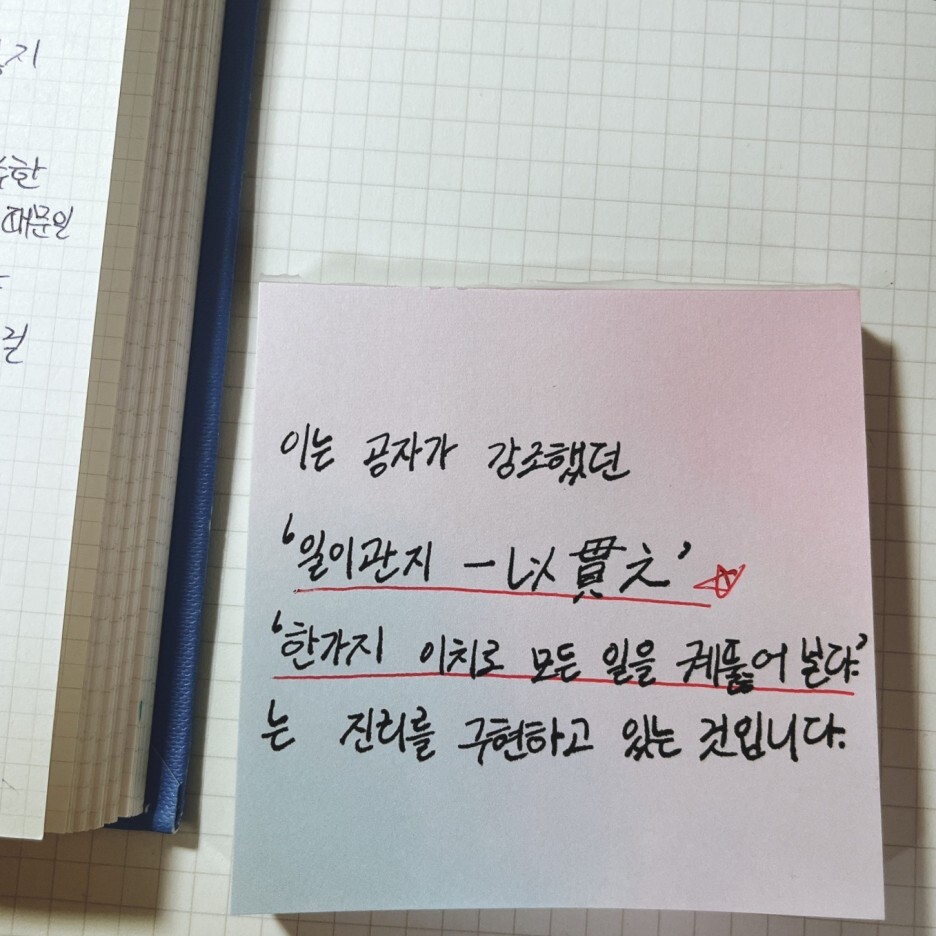 때문일
이는 공자가 강조했던
'일이관지 一以貫之'
'한가지 이치로 모든 일을 궤뚫어 본다.'
는 진리를 구현하고 있는 것입니다.